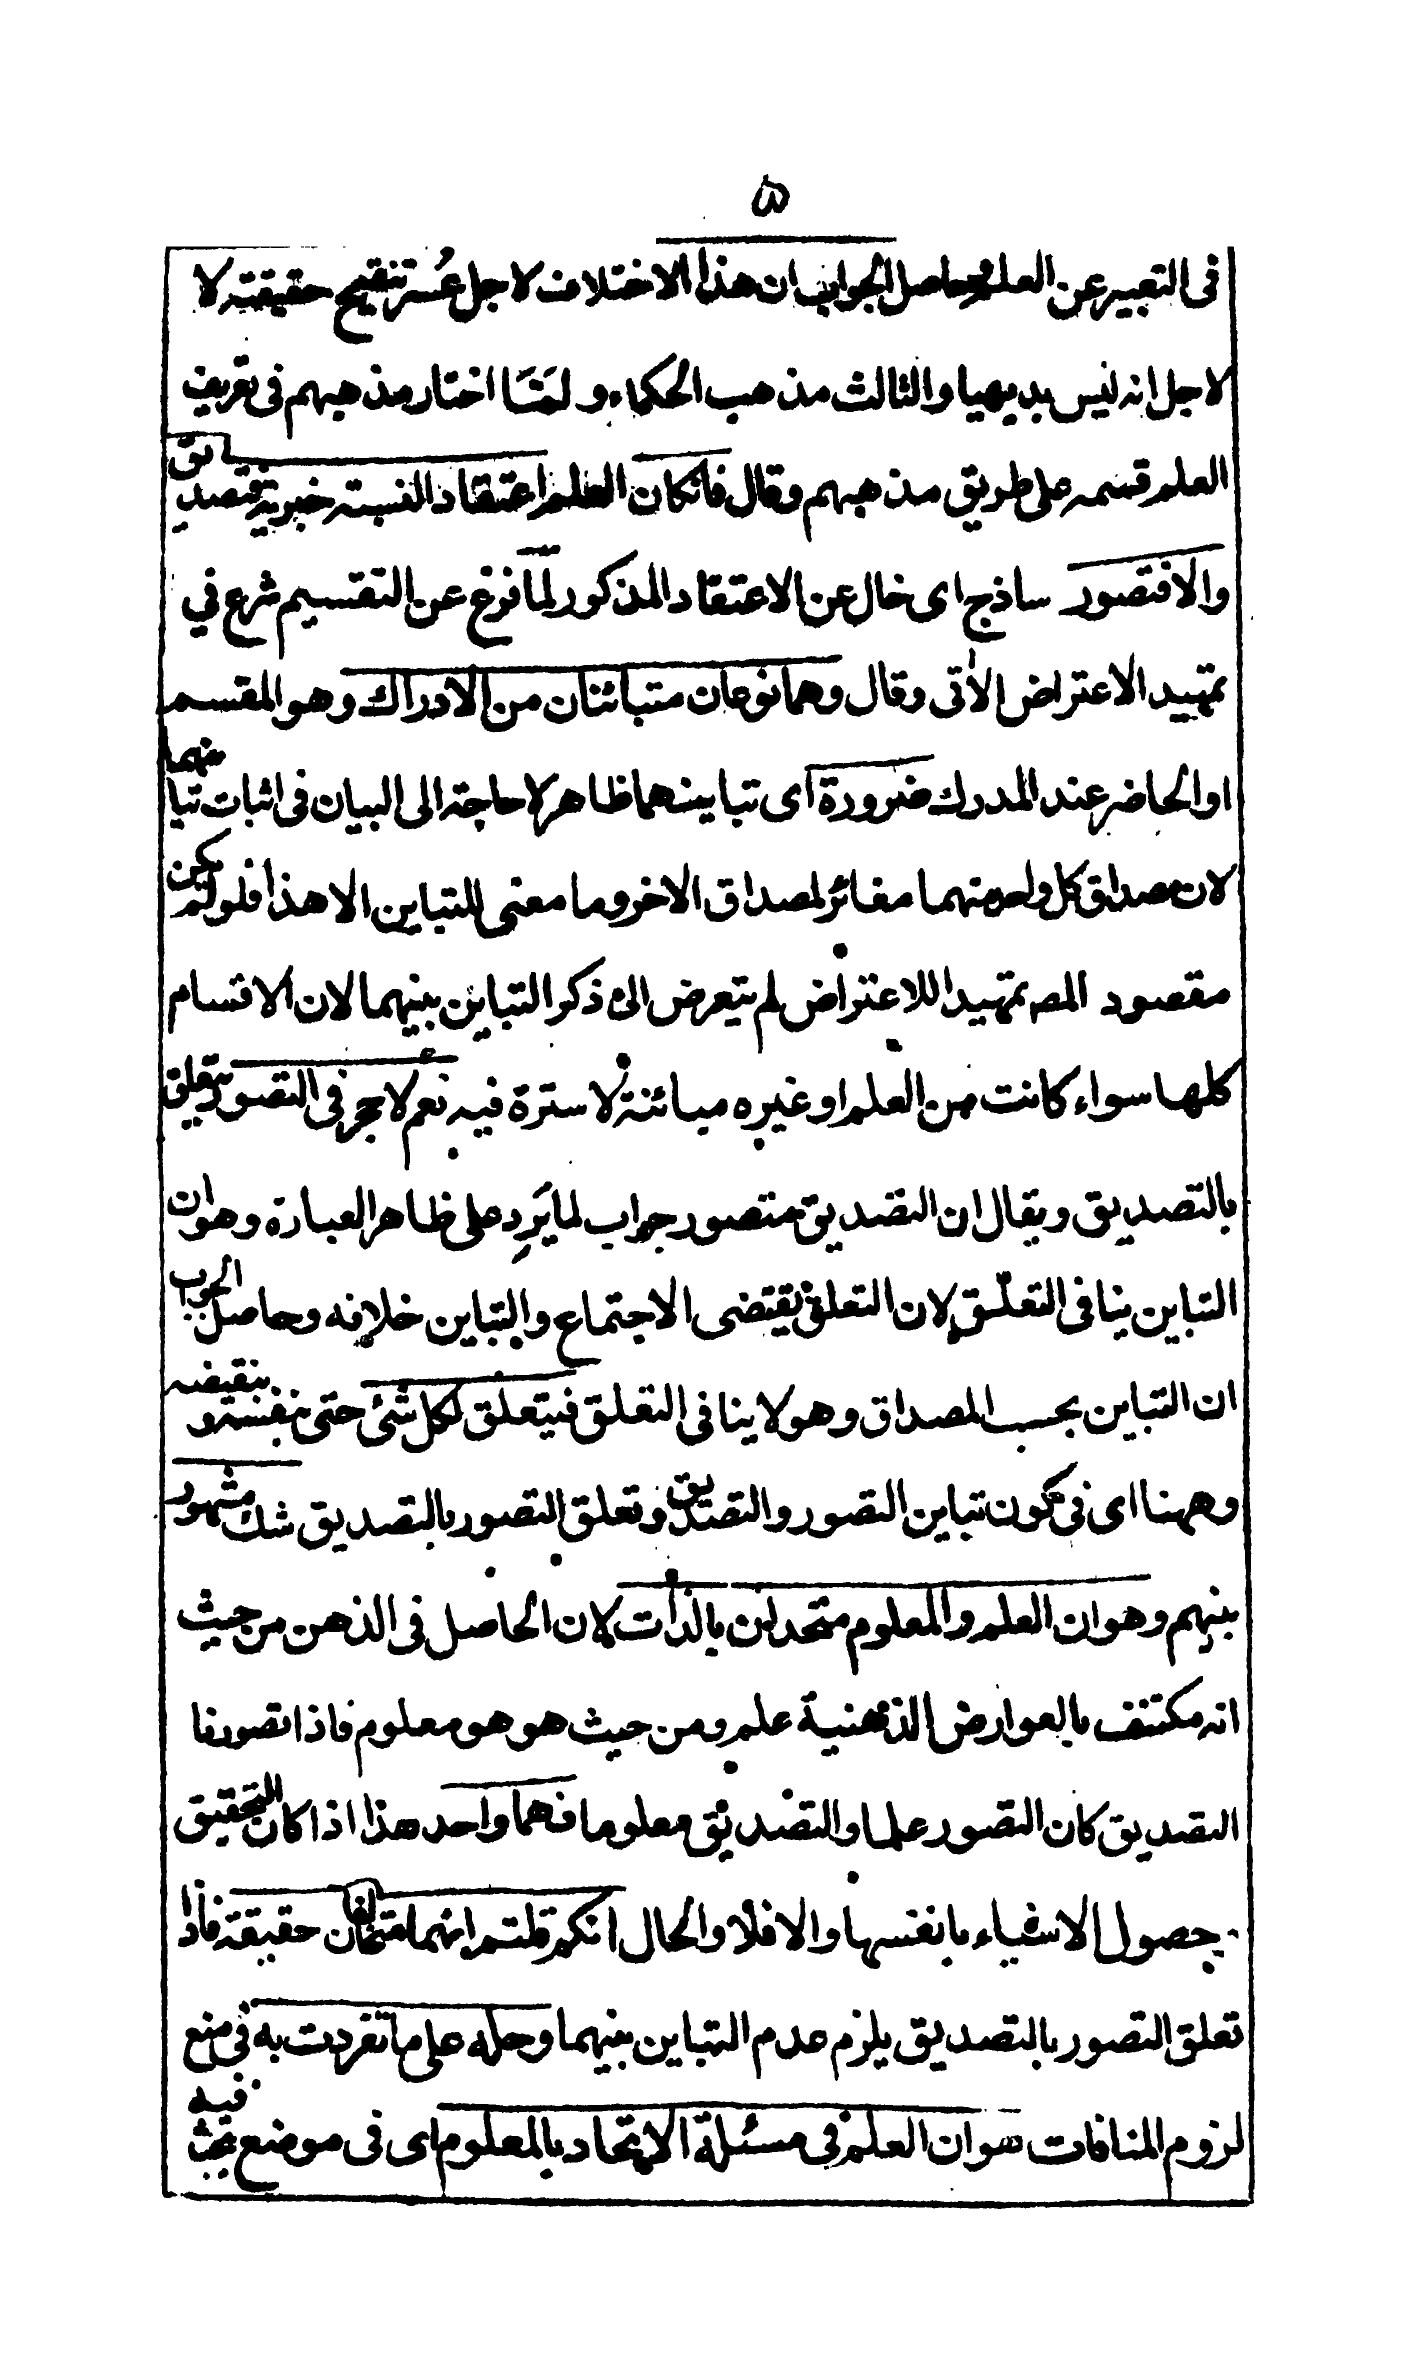 ۵
فى التعبير عن العلم وحاصل الجواب ان هذا الاختلاف لاجل عُسر تنقيح حقيقته لا
لاجل انه ليس بديهيا والثالث مذهب الحكماء ولمّا اختار مذهبهم فى تعريف
العلم قسمه على طريق مذهبهم وقال فانكان العلم اعتقاد النسبته خبرية فتصديق
والا فتصور ساذج اى خال عن الاعتقاد المذكور لمّا فرغ عن التقسيم شرع في
تمهيد الاعتراض الأتى وقال وهما نوعان متبائنان من الادراك وهو المقسم
او الحاضر عند المدرك ضرورة اى تباينهما ظاهر لا حاجته الى البيان فى اثبات تباينهما
لان مصداق كل واحد منهما مغائر لمصداق الاخر وما معنى للتباين الا هذا فلو لم يكن
مقصود المصـ تمهيدا للاعتراض لم يتعرض الى ذكر التباين بينهما لان الاقسام
كلها سواء كانت من العلم او غيره مبائنة لا سترة فيه نعم لا حجر فى التصور يتعلق
بالتصديق ويقال ان التصديق متصور جواب لما يَرِد على ظاهر العبارة وهو ان
التباين ينافى التعلّق لان التعلق يقتضى الاجتماع والتباين خلافه وحاصل الجواب
ان التباين بحسب المصداق وهو لا ينافى التعلق فيتعلق لكل شئ حتى بنفسه وبنقيضه
وههنا اى فى كون تباين التصور والتصديق وتعلق التصور بالتصديق شك مشهور
بينهم وهو ان العلم والمعلوم متحدان بالذات لان الحاصل فى الذهن من حيث
انه مكتنف بالعوارض الذهنية علم ومن حيث هو هو معلوم فاذا تصورنا
التصديق كان التصور علما والتصديق معلوما فهما واحد هذا اذا كان التحقيق
حصول الاشياء بانفسها والا فلا والحال انكم قلتم انهما متخالفان حقيقة فاذا
تعلق التصور بالتصديق يلزم عدم التباين بينهما وحله على ما تفردت به فى منع
لزوم المنافات هو ان العلم فى مسئلة الاتحاد بالمعلوم اى فى موضع يبحث فيه